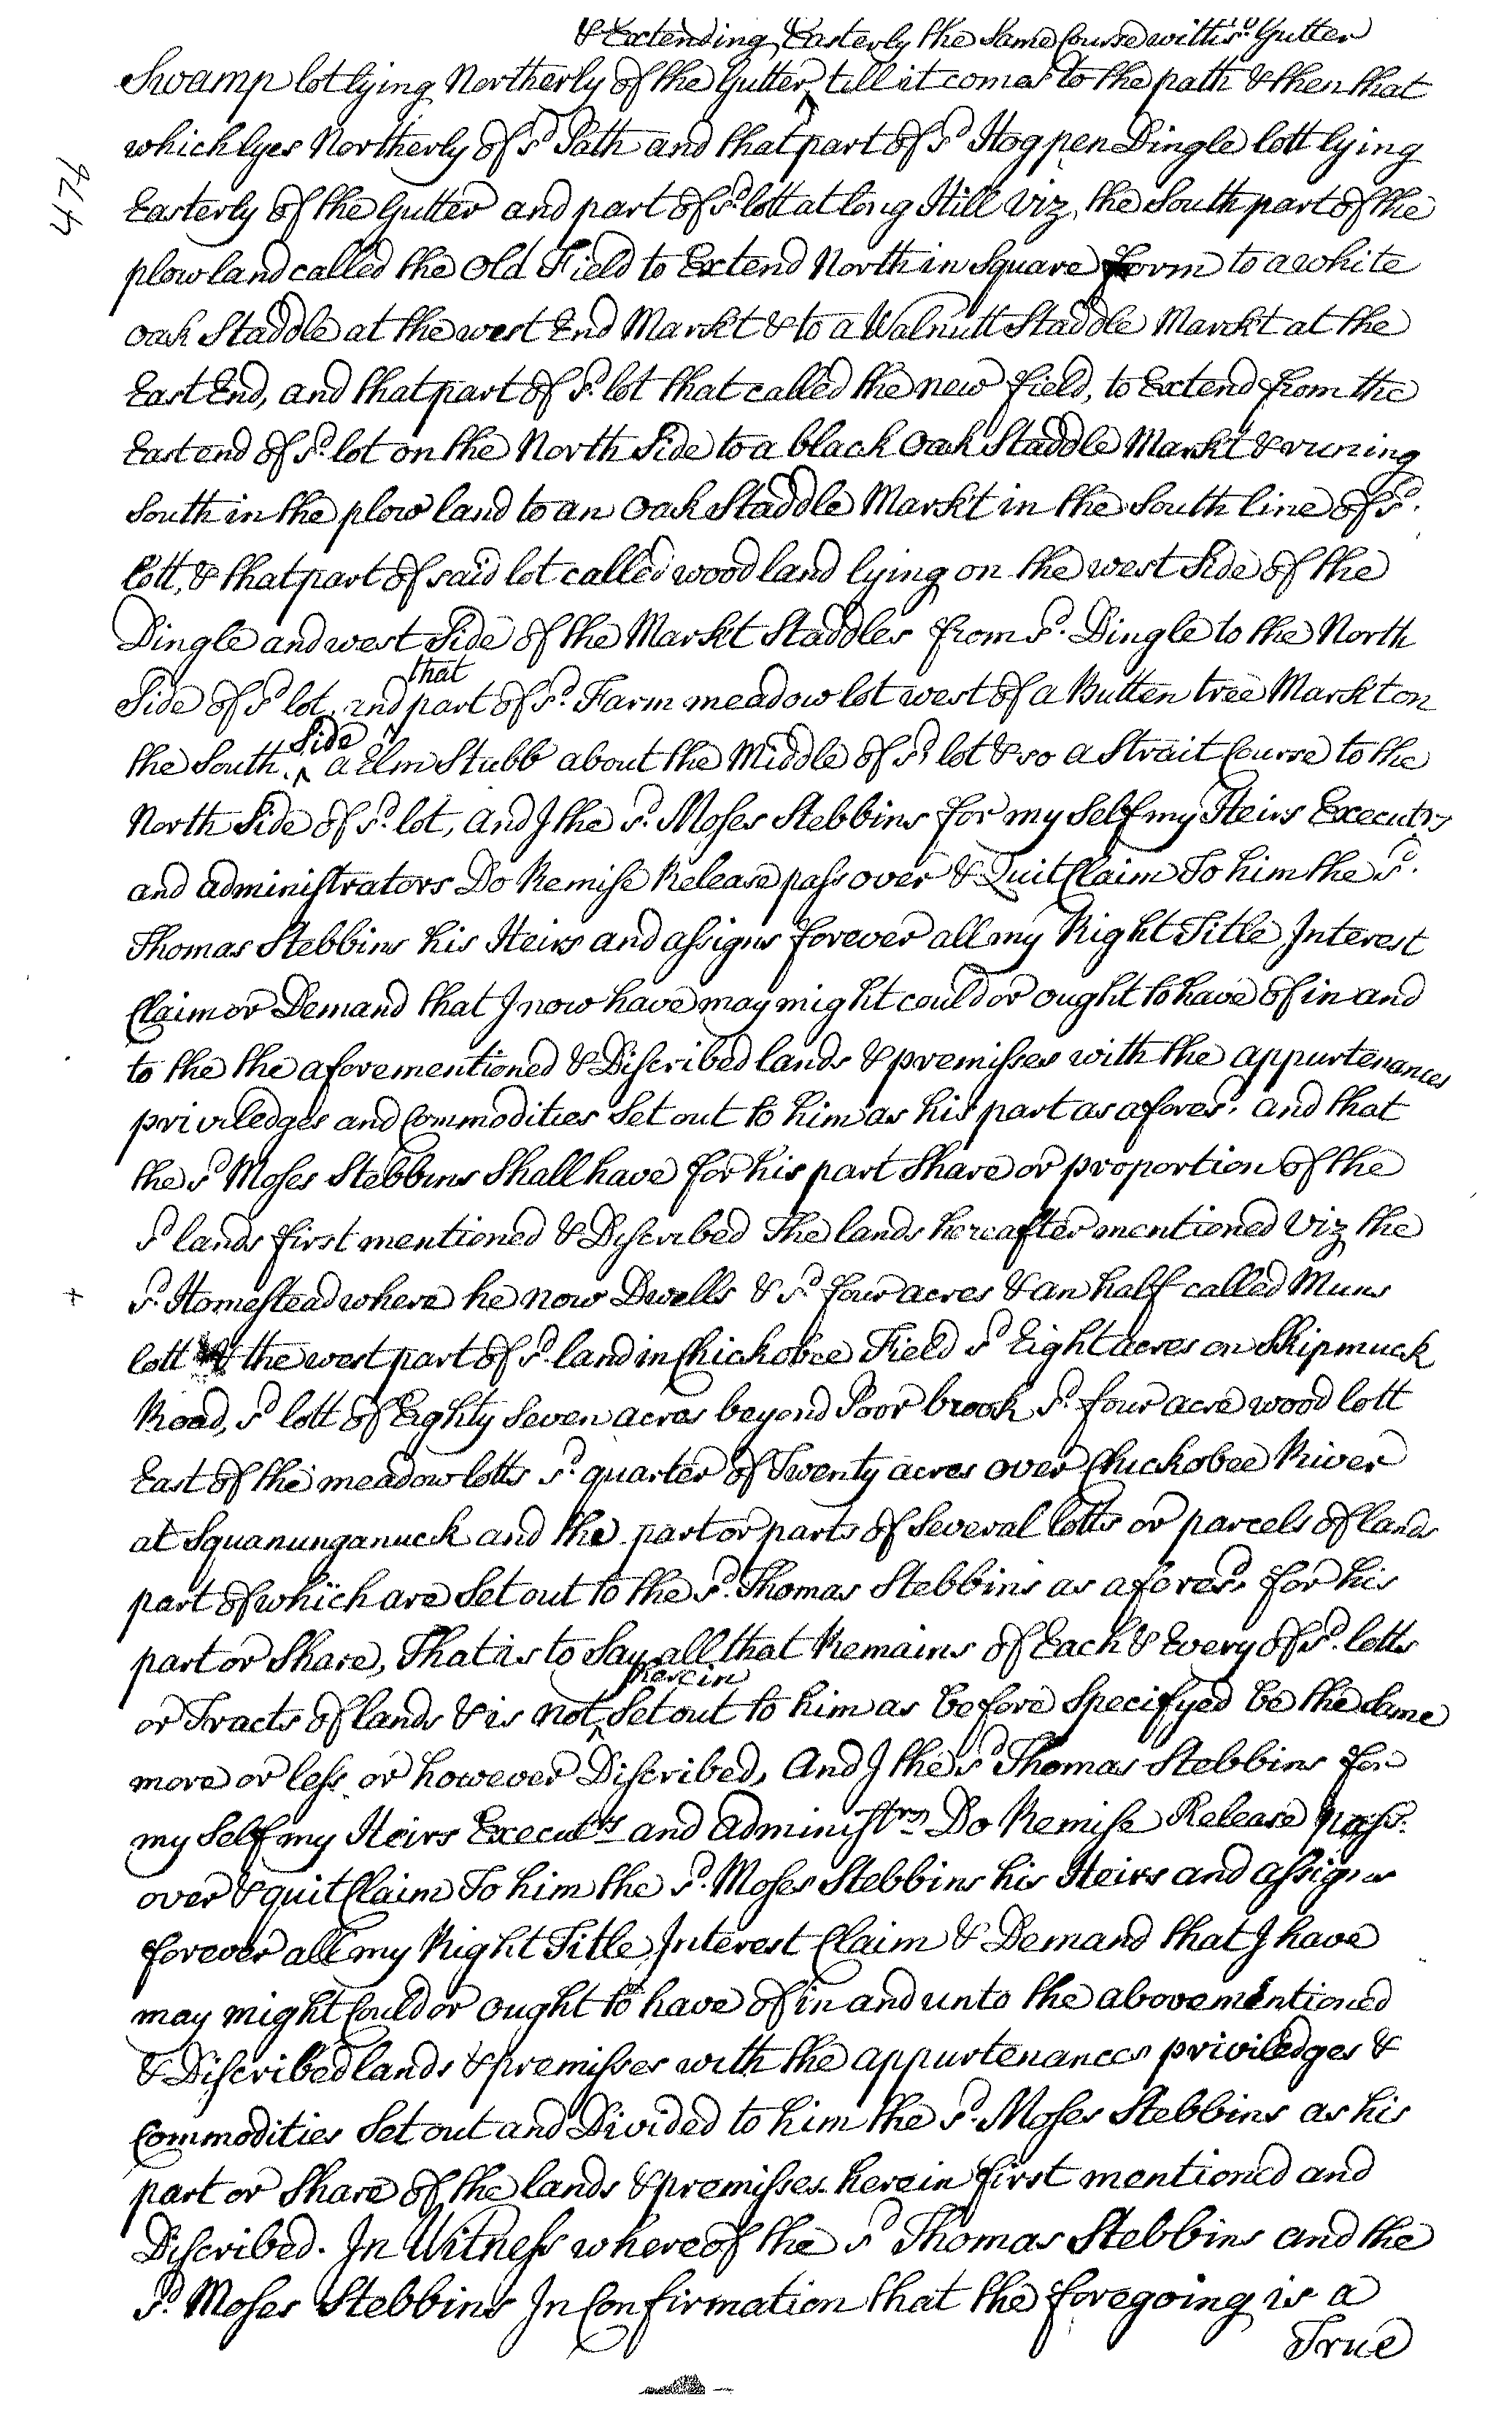 & Extending Easterly the Same Course with sd. Gutter
Swamp lot lying Northerly of the Gutter ^ till it comes to the path & then that
which lyes Northerly of sd Path and that part of sd Hogpen Dingle lott lying
476
Easterly of the Gutter and part of sd. lott at long Hill viz, the South part of the
plow land called the Old Field to Extend North in Square form to a white
oak Staddle at the west End Markt & to a Walnutt Staddle Markt at the
East End, and that part of sd. lot that called the new field, to Extend from the
East end of sd. lot on the North Side to a black Oak Staddle Markt & runing
South in the plow land to an Oak Staddle Markt in the South line of sd.
lott, & that part of said lot called wood land lying on the west Side of the
Dingle and west Side of the Markt Staddles from sd. Dingle to the North
that
Side of sd lot, and ^ part of sd. Farm meadow lot west of a Butten tree Markt on
Side
the South ^ a Elm Stubb about the Middle of sd. lot & so a Strait Course to the
North Side of sd. lot, and I the sd. Moses Stebbins for my Self my Heirs Executrs
and administrators Do Remise Release pass over & Quit Claim To him the sd.
Thomas Stebbins his Heirs and assigns forever all my Right Title Interest
Claim or Demand that I now have may might could or ought to have of in and
to the the aforementioned & Discribed lands & premisses with the appurtenances
priviledges and Commodities Set out to him as his part as aforesd. and that
the sd Moses Stebbins Shall have for his part Share or proportion of the
sd lands first mentioned & Discribed The lands hereafter mentioned viz the
+ sd. Homestead where he now Dwells & sd. four acres & an half called Muns
lott & the west part of sd. land in Chickobee Field sd Eight acres on Skipmuck
Road, sd lott of Eighty Seven acres beyond Poor brook sd. four acre wood lott
East of the meadow lotts sd. quarter of Twenty acres over Chickobee River
at Squanunganuck and the part or parts of Several lotts or parcels of lands
part of which are Set out to the sd. Thomas Stebbins as aforesd. for his
part or Share, That is to Say all that Remains of Each & Every of sd. lotts
herein
or Tracts of lands & is not ^ Set out to him as before Specifyed be the Same
more or less or however Discribed, And I the sd Thomas Stebbins for
my Self my Heirs Executrs and Administrrs Do Remise Release pass
over & quit Claim To him the sd. Moses Stebbins his Heirs and assigns
forever all my Right Title Interest Claim & Demand that I have
may might Could or ought to have of in and unto the abovementioned
& Discribed lands & premisses with the appurtenances priviledges &
Commodities Set out and Divided to him the sd. Moses Stebbins as his
part or Share of the lands & premisses herein first mentioned and
Discribed. In Witness whereof the sd Thomas Stebbins and the
sd. Moses Stebbins In Confirmation that the foregoing is a
True